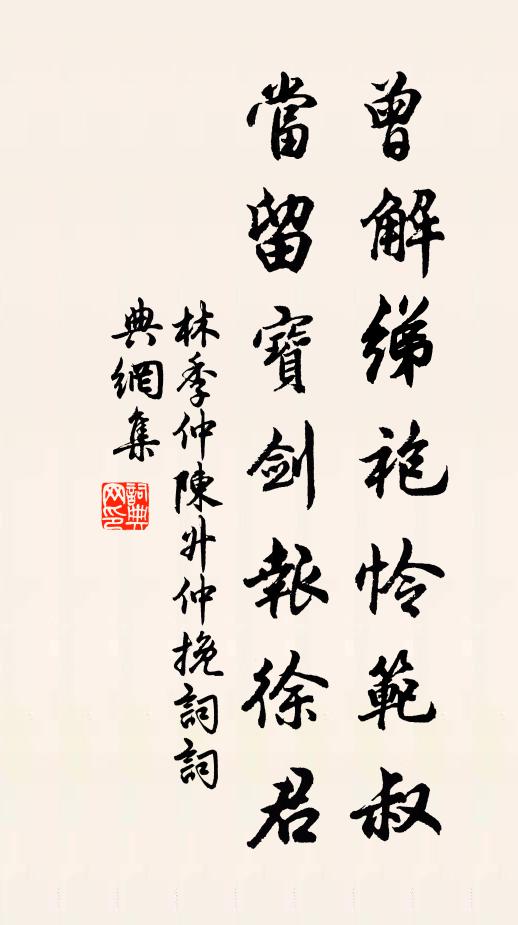 曾解綈袍怜範叔
當留寶劍報徐君
林季仲陳廾仲挽詞詞
典網集
詞典網印